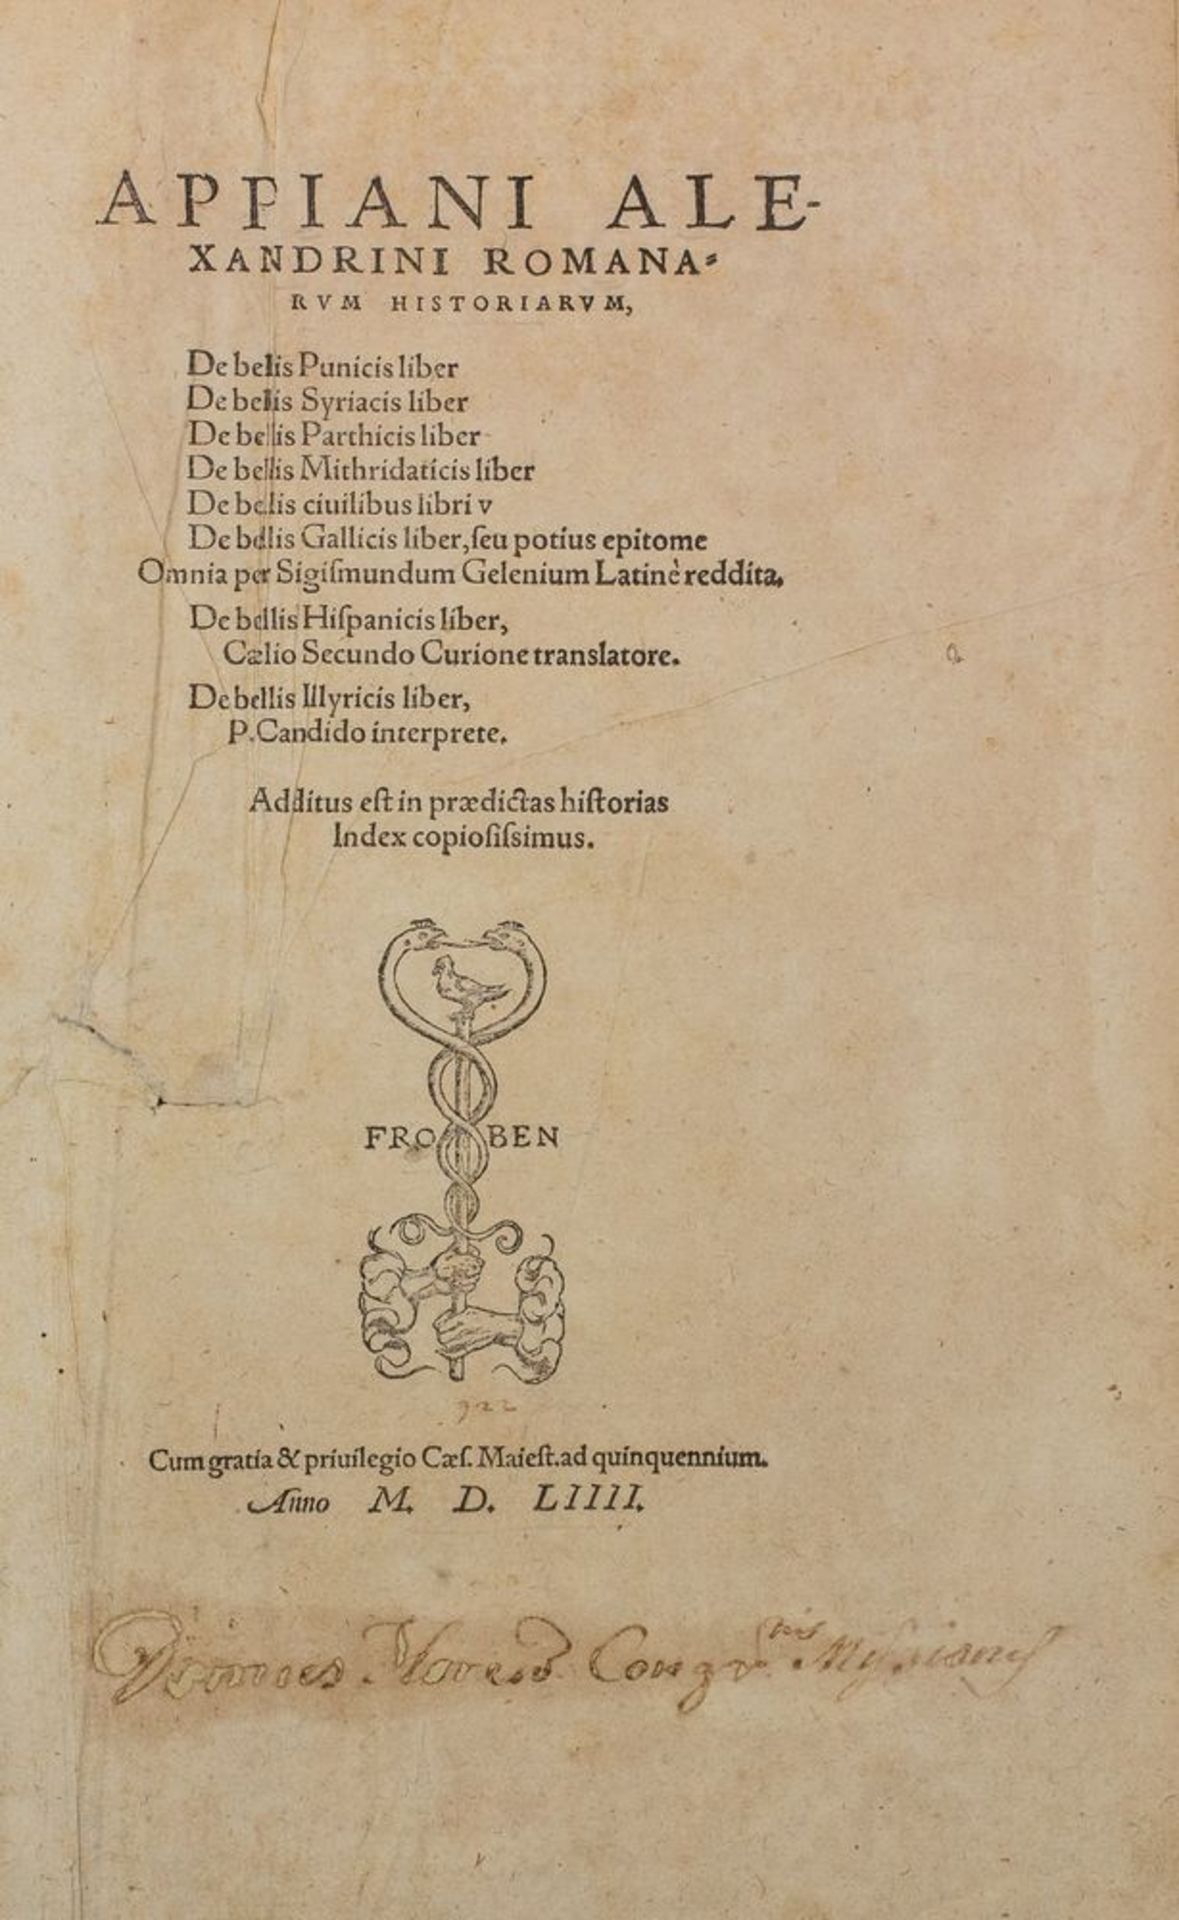 APPIANI ALE-
XANDRINI ROMANA-
RVM HISTORIARVM,
De bellis Punicis liber
De bellis Syriacis liber
De bellis Parthicis liber
De bellis Mithridaticis liber
De bellis ciuilibus libri v
De bellis Gallicis liber, ſeu potius epitome
Omnia per Sigiſmundum Gelenium Latinè reddita.
De bellis Hiſpanicis liber,
Cælio Secundo Curione translatore.
De bellis Illyricis liber,
P. Candido interprete.
Additus eſt in prædictas hiſtorias
Index copioſiſsimus.
FRO BEN
922
Cum gratia & priuilegio Cæſ. Maieſt. ad quinquennium.
Anno M. D. LIIII.